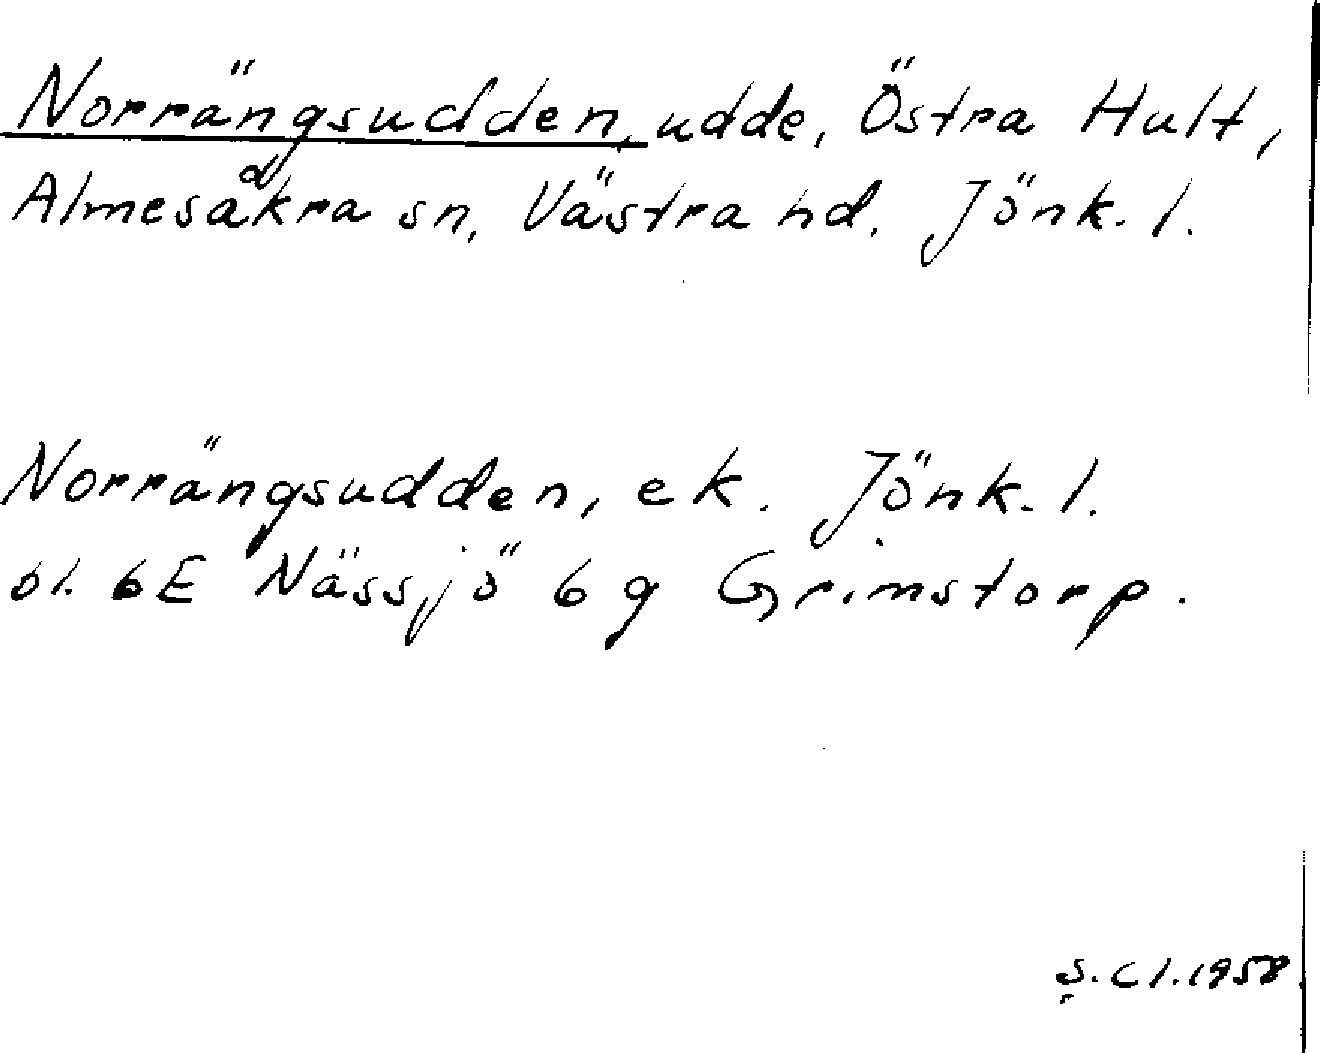 Norrängsudden, udde, Östra Hult,
Almesåkra sn, Västra hd. Jönk. l.
Norrängsudden, ek. Jönk. l.
bl. 6E Nässjö 6 g Grimstorp.
S. Cl. 1958